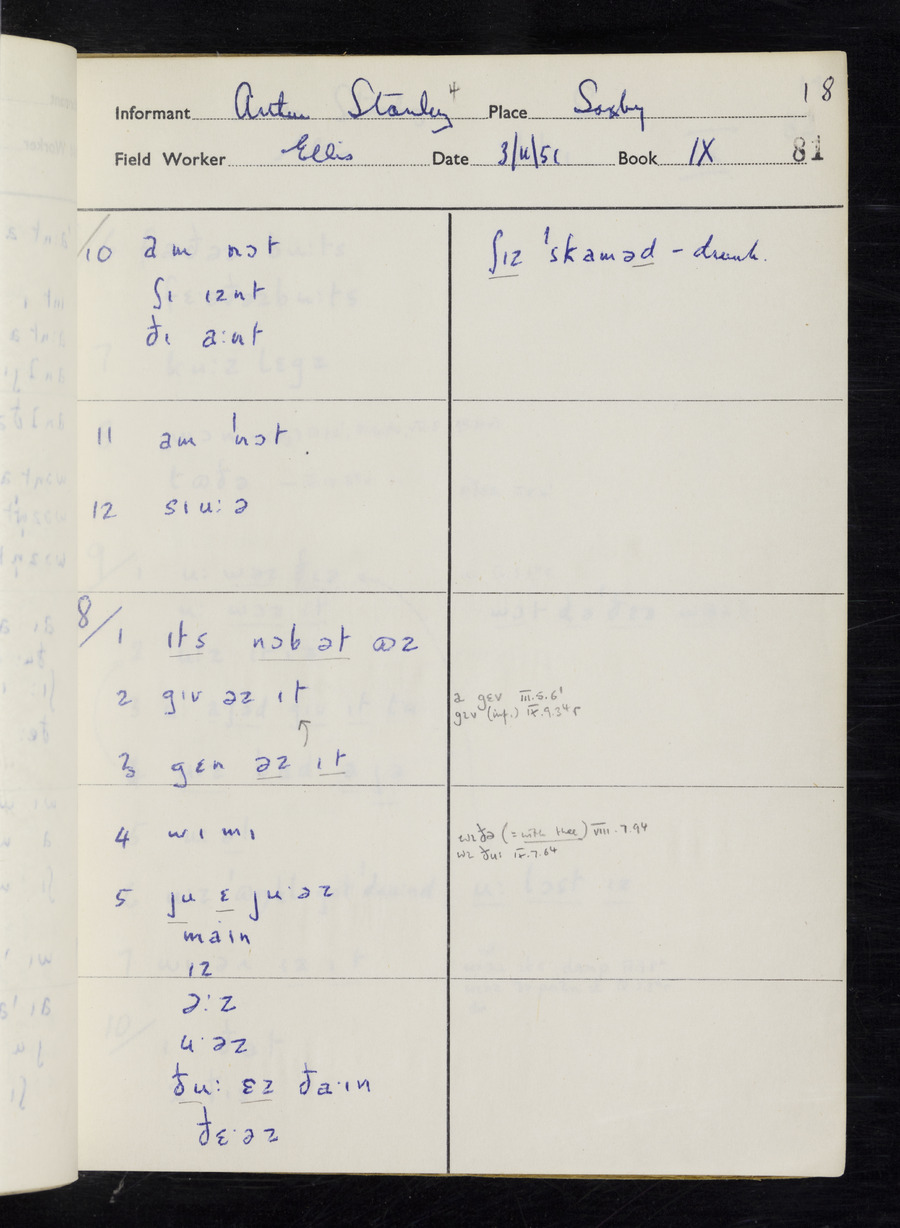 18
Informant Arthur Stanley 4 Place Saxby
Field Worker Ellis Date 3/11/51 Book IX 81
10 am nɔt
ʃɪ ɪznt
ðɪ a:nt
ʃɪz ˈskaməd – drunk.
11 am ˈnɔt
12 sɪu:ə
8/1 ɪts nɔbət ɷz
2 gɪv əz ɪt
↑
a gɛv III.5.6¹
gɪv (imp.) IX.9.34r
3 gɛn əz ɪt
4 wɪ mɪ
wɪðə (= with thee) VIII.7.94
wɪ ðu: IX.7.64
5 ju ɛ ju·əz
maɪn
ɪz
ə:z
u·əz
ðu: ɛz ða·ɪn
ðɛ·əz